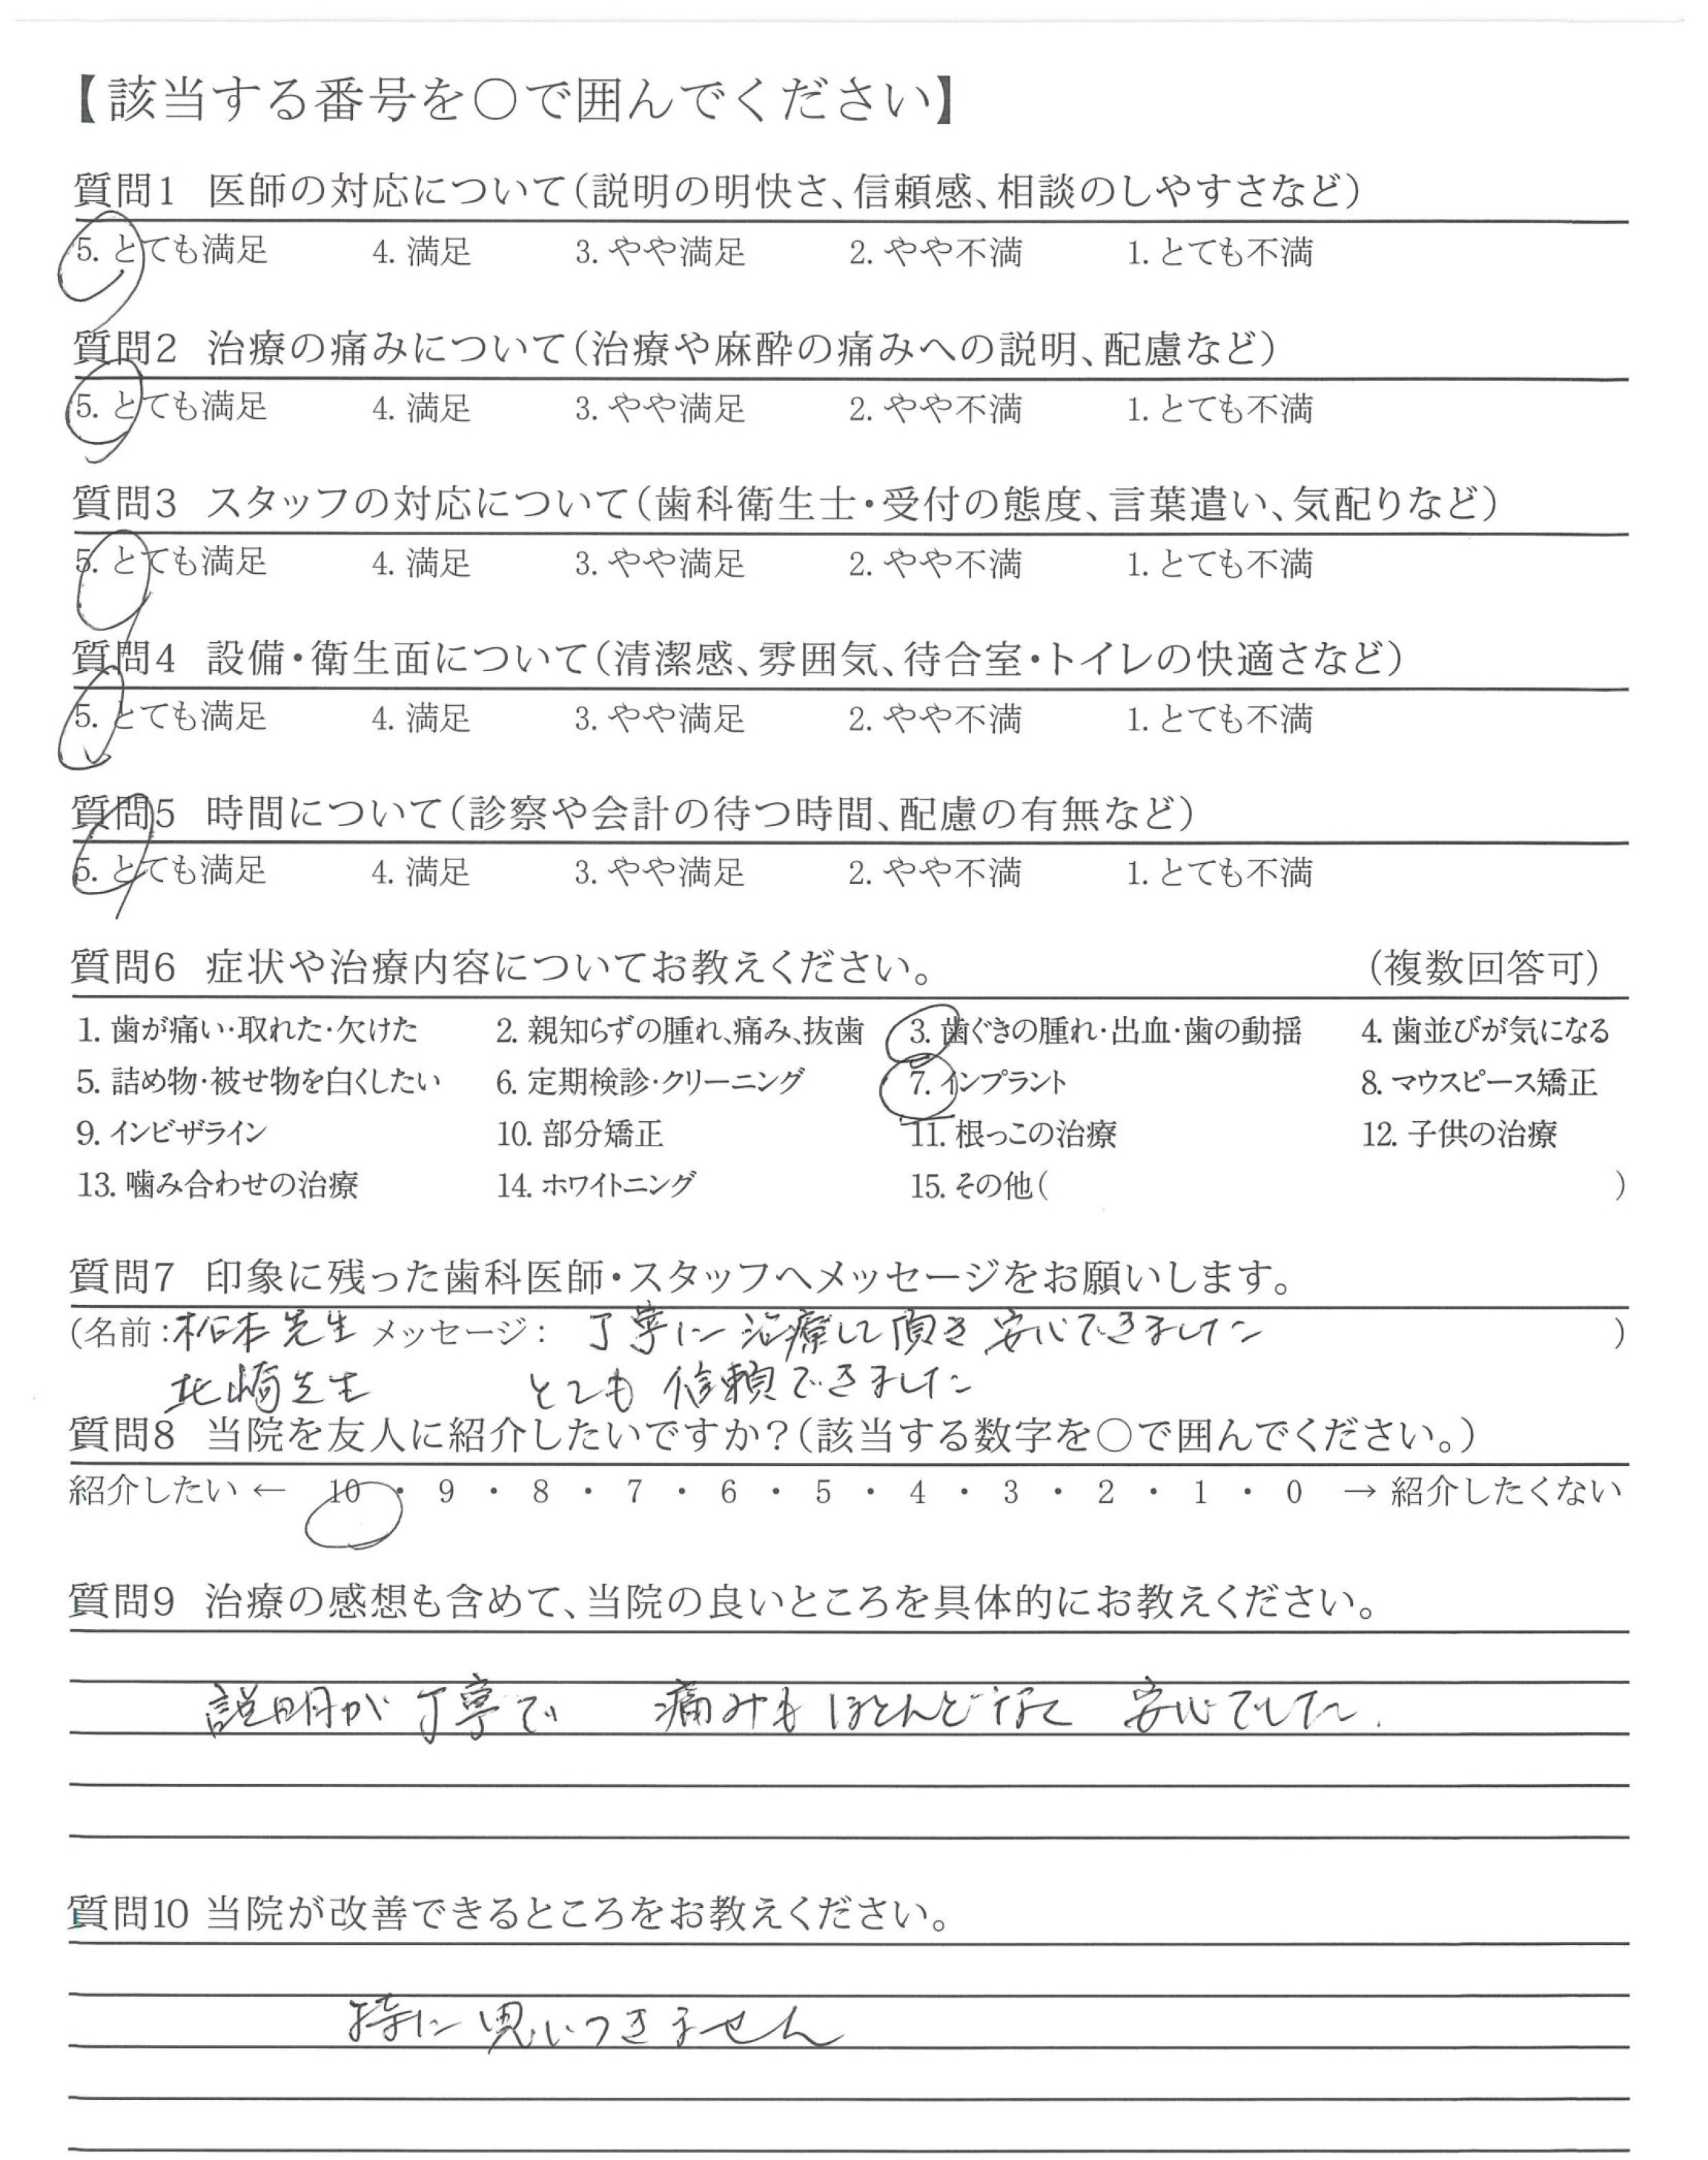 【該当する番号を〇で囲んでください】
質問1 医師の対応について（説明の明快さ、信頼感、相談のしやすさなど）
5. とても満足 4. 満足 3. やや満足 2. やや不満 1. とても不満
質問2 治療の痛みについて（治療や麻酔の痛みへの説明、配慮など）
5. とても満足 4. 満足 3. やや満足 2. やや不満 1. とても不満
質問3 スタッフの対応について（歯科衛生士・受付の態度、言葉遣い、気配りなど）
5. とても満足 4. 満足 3. やや満足 2. やや不満 1. とても不満
質問4 設備・衛生面について（清潔感、雰囲気、待合室・トイレの快適さなど）
5. とても満足 4. 満足 3. やや満足 2. やや不満 1. とても不満
質問5 時間について（診察や会計の待つ時間、配慮の有無など）
5. とても満足 4. 満足 3. やや満足 2. やや不満 1. とても不満
質問6 症状や治療内容についてお教えください。 （複数回答可）
1. 歯が痛い・取れた・欠けた 2. 親知らずの腫れ、痛み、抜歯 3. 歯ぐきの腫れ・出血・歯の動揺 4. 歯並びが気になる
5. 詰め物・被せ物を白くしたい 6. 定期検診・クリーニング 7. インプラント 8. マウスピース矯正
9. インビザライン 10. 部分矯正 11. 根っこの治療 12. 子供の治療
13. 噛み合わせの治療 14. ホワイトニング 15. その他（ ）
質問7 印象に残った歯科医師・スタッフへメッセージをお願いします。
（名前：先生 メッセージ： 丁寧に治療して頂き安心できました ）
北崎先生 とても信頼できました
質問8 当院を友人に紹介したいですか？（該当する数字を〇で囲んでください。）
紹介したい ← 10 ・ 9 ・ 8 ・ 7 ・ 6 ・ 5 ・ 4 ・ 3 ・ 2 ・ 1 ・ 0 → 紹介したくない
質問9 治療の感想も含めて、当院の良いところを具体的にお教えください。
説明が丁寧で 痛みもほとんどなく 安心でした.
質問10 当院が改善できるところをお教えください。
特に思いつきません